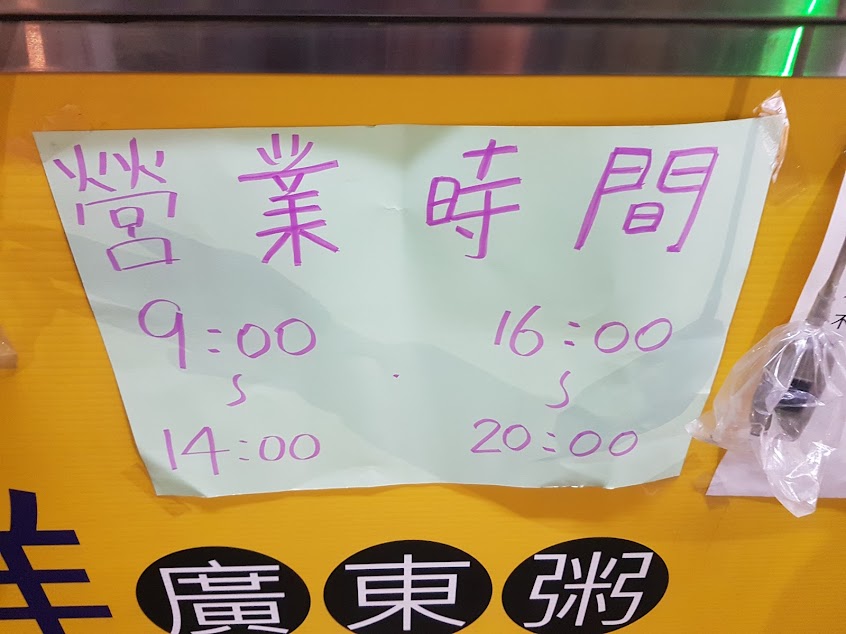 營業時間
9:00 16:00
~ ~
14:00 20:00
廣東粥